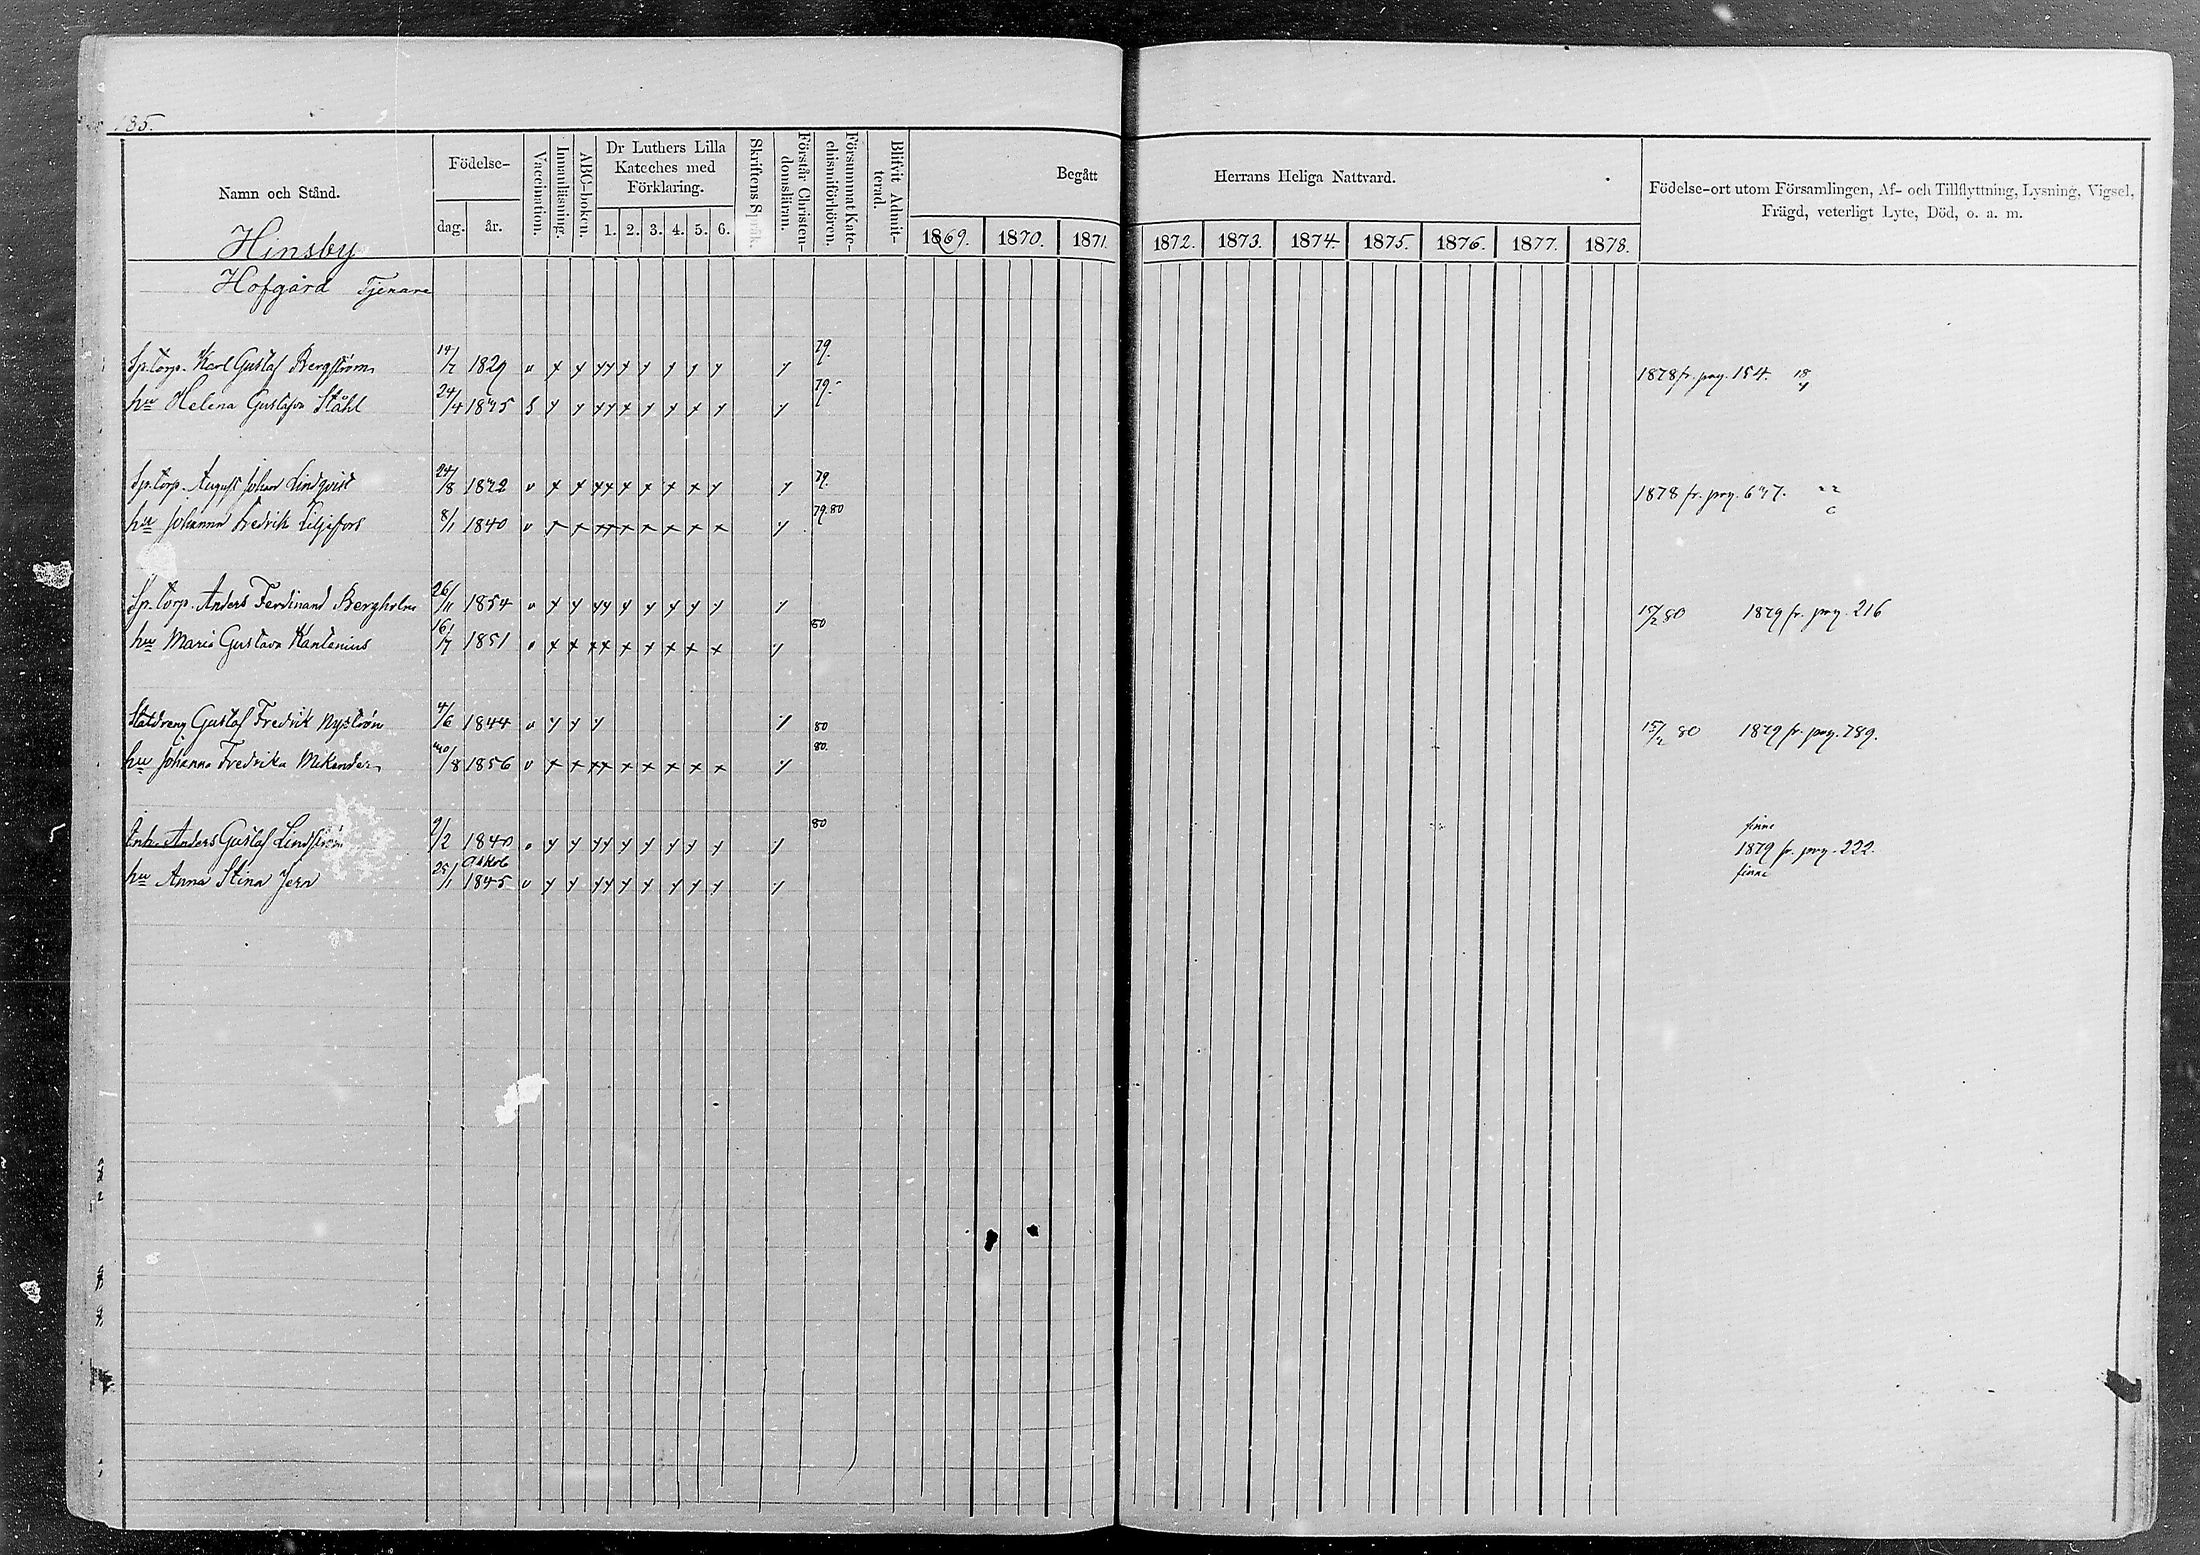 185.
Namn och Stånd.
Födelse-
dag.
år.
Vaccination.
Innanläsning.
ABC-boken.
Dr Luthers Lilla
Kateches med
Förklaring.
1. 2. 3. 4. 5. 6.
Skriftens Språk.
Förstår Christen-
domsläran.
Försummat Kate-
chismiförhören.
Blifvit Admit-
terad.
Begått
Herrans Heliga Nattvard.
1869. 1870. 1871. 1872. 1873. 1874. 1875. 1876. 1877. 1878.
Födelse-ort utom Församlingen, Af- och Tillflyttning, Lysning, Vigsel,
Frägd, veterligt Lyte, Död, o. a. m.
Hinsby
Hofgård Tjenare
Sp.torp. Karl Gustaf Bergström 1829 v 79. 1878 fr. pag. 154.
hu Helena Gustafva Ståhl 24/4 79.
Sp.torp. August Johan Lindqvist 24/8 v 79. 1878 fr. pag.
hu Johanna Fredrik Liljefors 8/1 1840 v 79.80
Sp.torp. Anders Ferdinand Bergholm 26/11 1854 v 80 1879 fr. pag. 216
hu Maria Gustava Kantenius 16/7 1851 80
Statdreng Gustaf Fredrik Nyström 4/6 1844 v 80 15/2 80 1879 fr. pag. 789.
hu Johanna Fredrika Mikander 1856 v 80.
Anders Gustaf Lindström 9/2 1840 80 finne
1879 fr. pag. 222.
hu Anna Stina Jern 25/1 1845 v finne